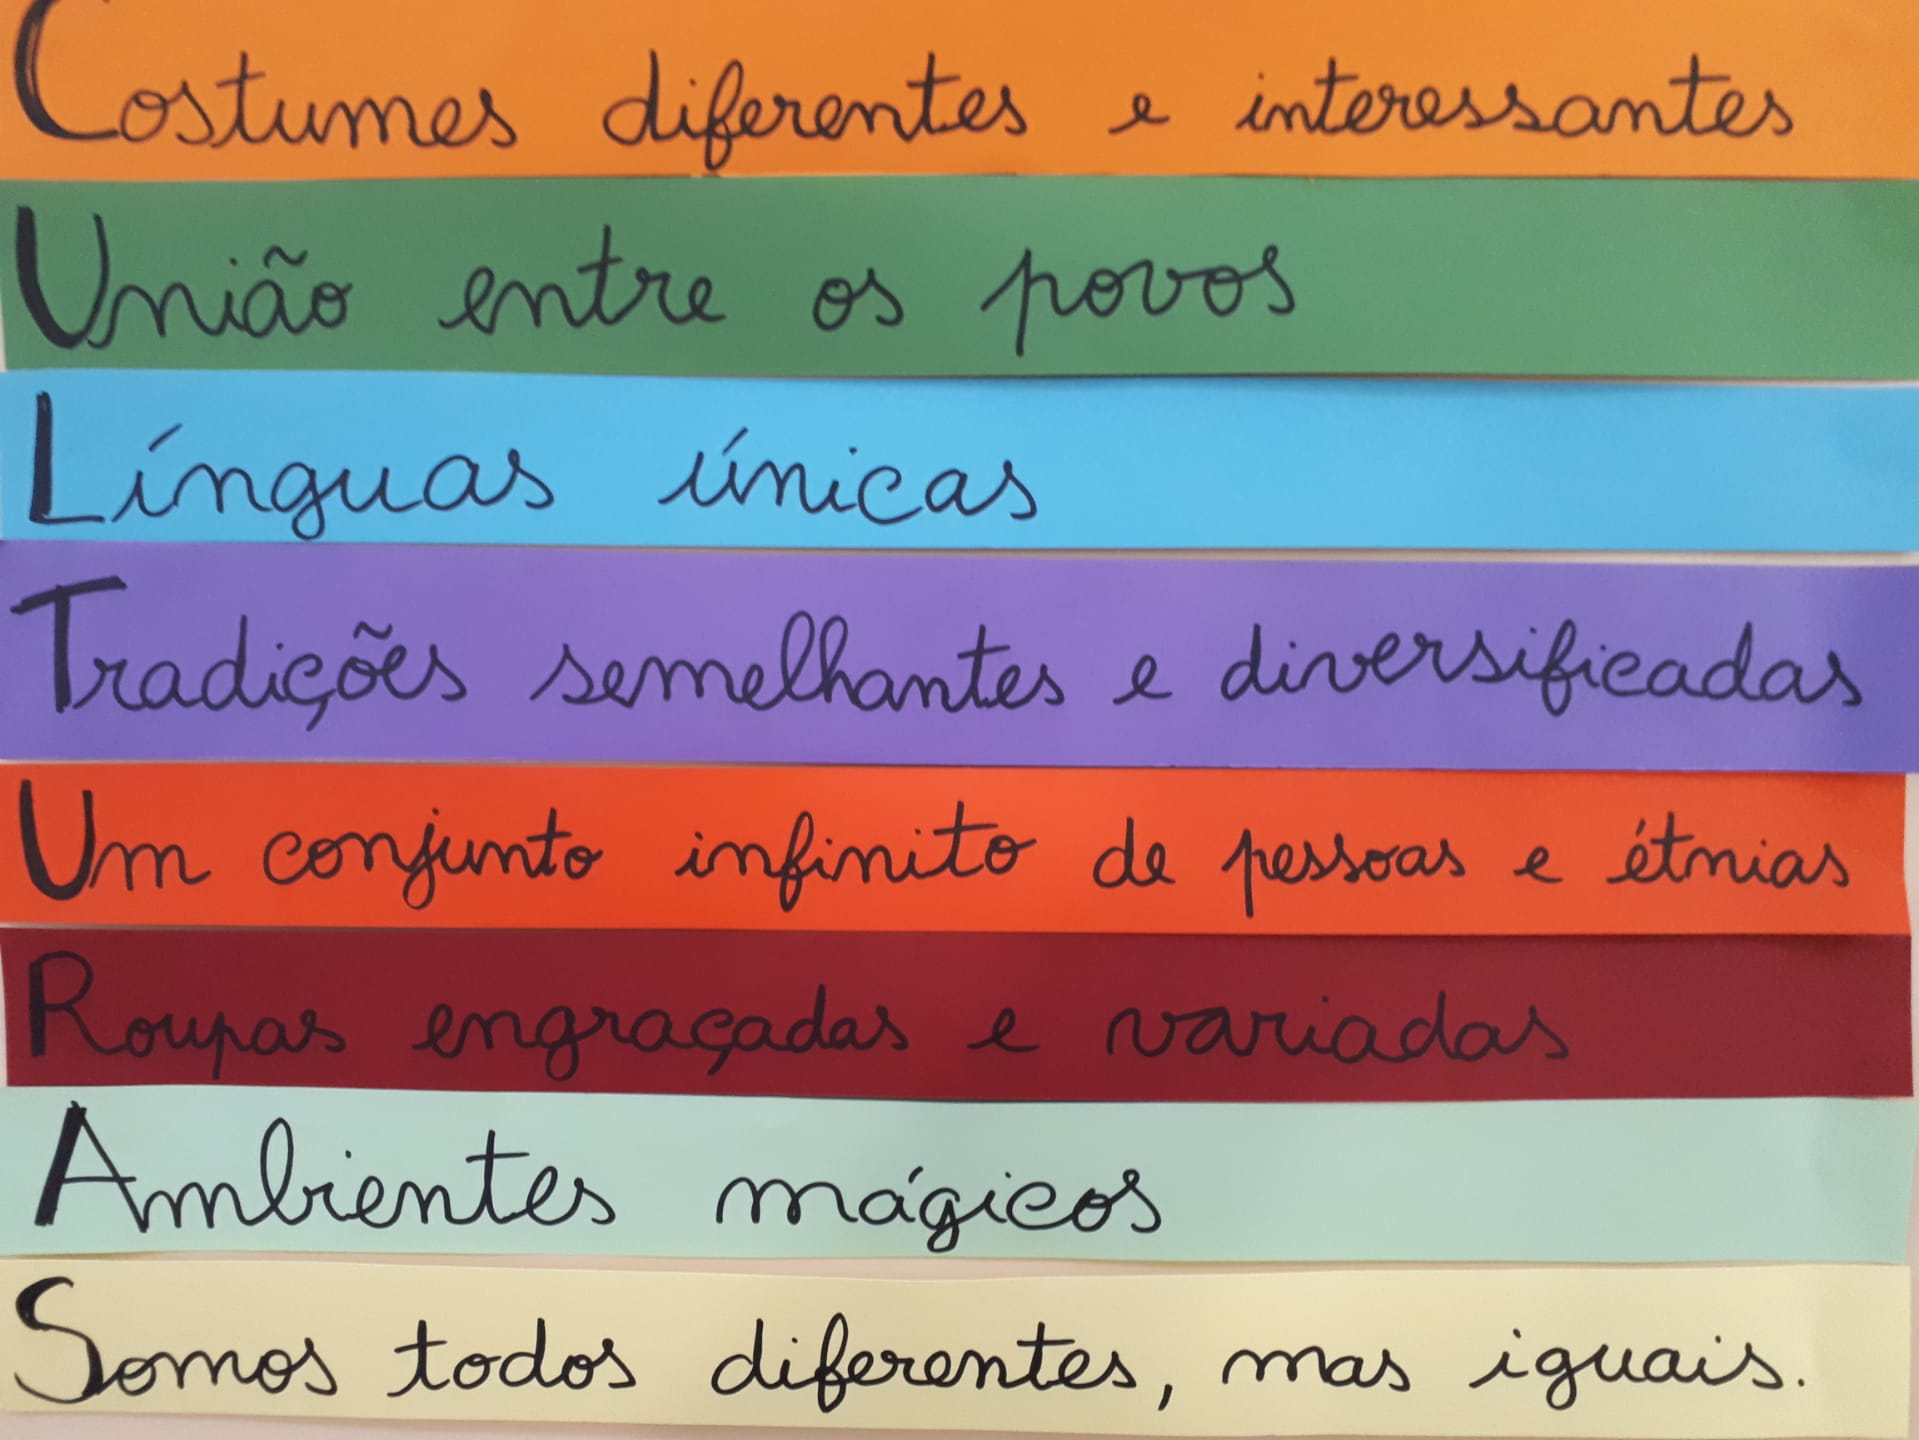 Costumes diferentes e interessantes
União entre os povos
Línguas únicas
Tradições semelhantes e diversificadas
Um conjunto infinito de pessoas e étnias
Roupas engraçadas e variadas
Ambientes mágicos
Somos todos diferentes, mas iguais.